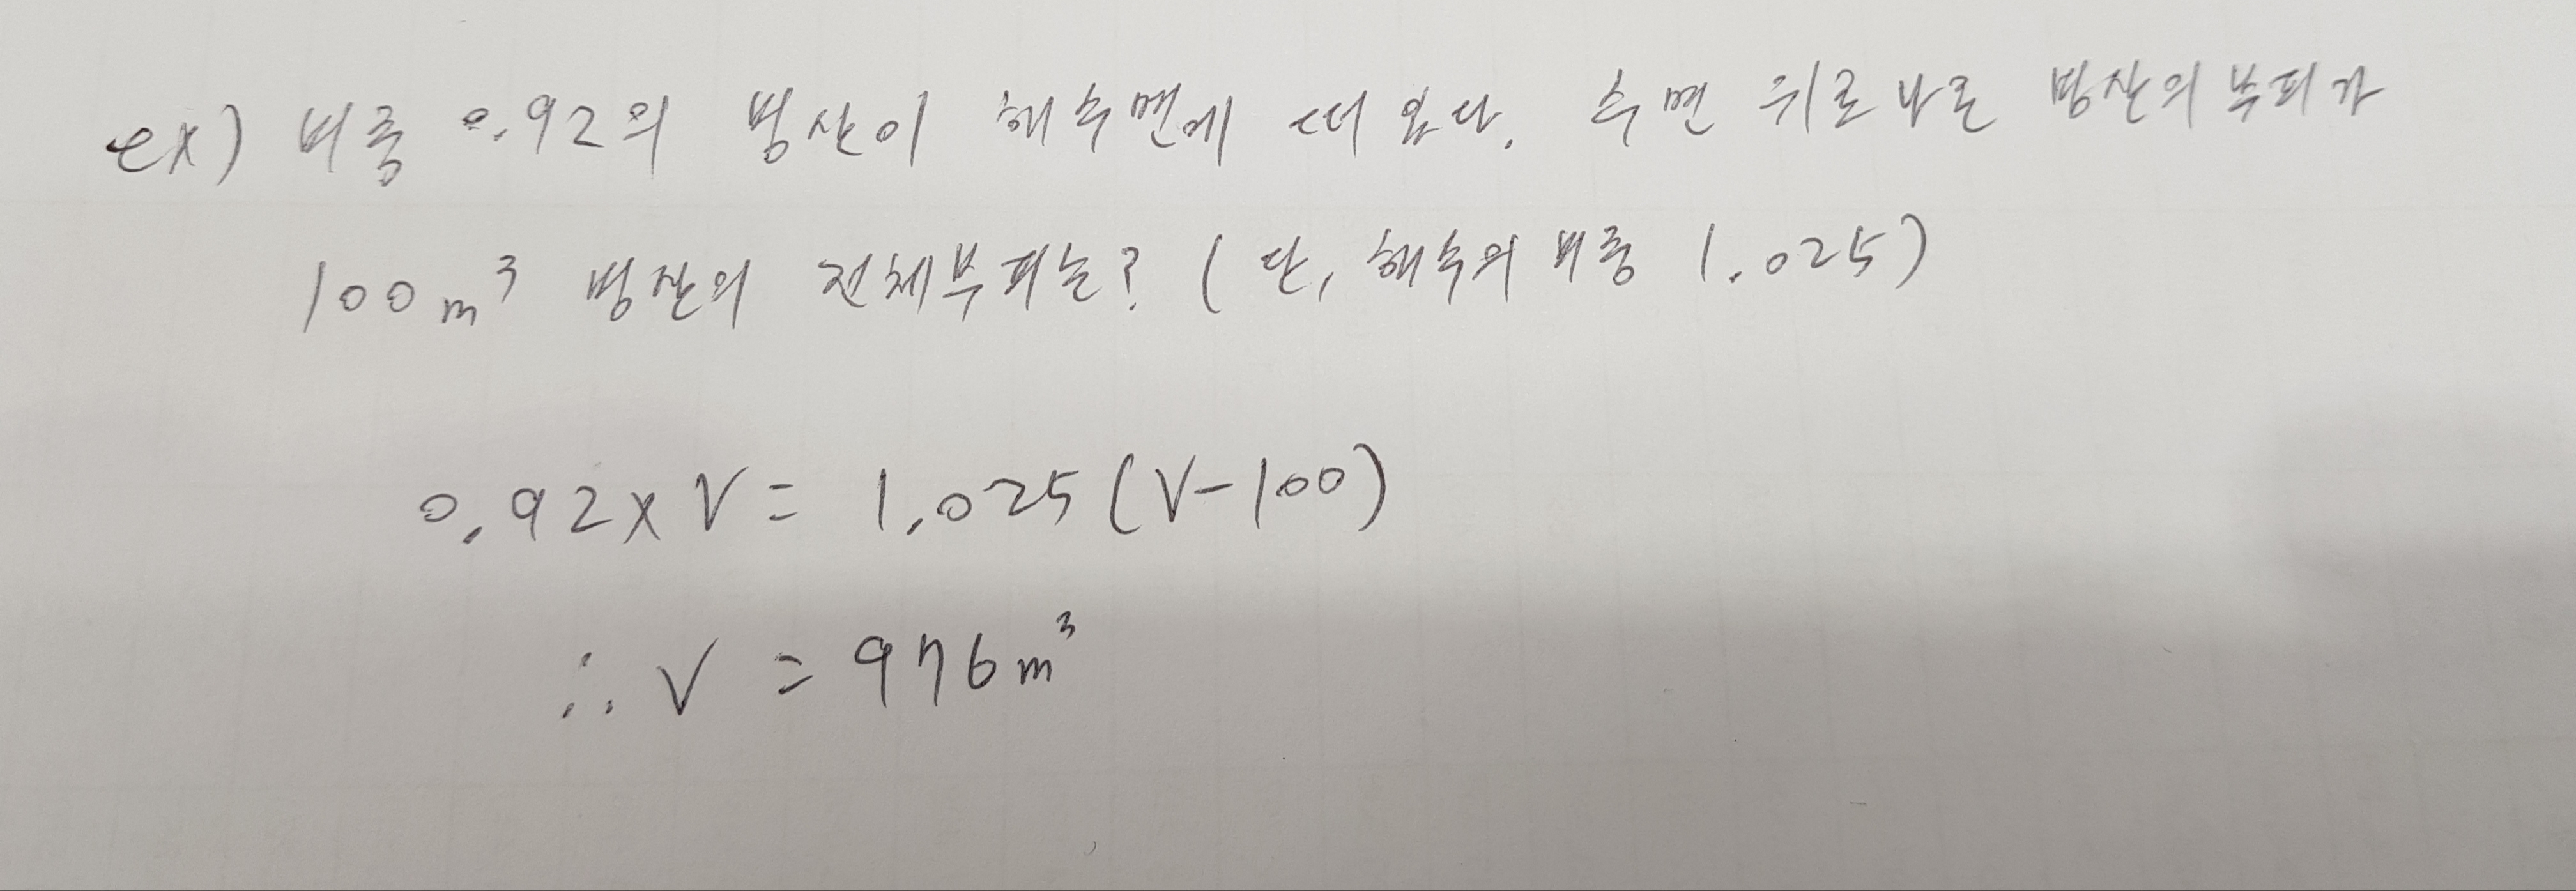 ex) 비중 0.92의 빙산이 해수면에 떠 있다. 수면 위로 나온 빙산의 부피가
100m³ 빙산의 전체부피는? (단, 해수의 비중 1.025)
0.92 x V = 1.025 (V-100)
∴ V = 976m³